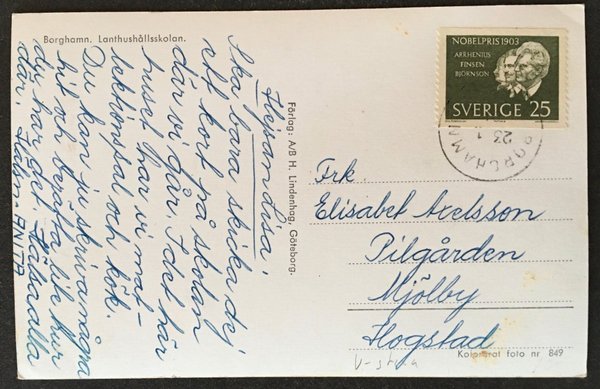 Borghamn. Lanthushållsskolan.
Hejsan Lisa!
Ska bara skicka dej
ett kort på skolan
där vi går. I det här
huset har vi mat-
lektionssal och kök.
Du kan ju skriva några
du har det.
där! Hälsn. ANITA
Förlag: A/B H. Lindenhag, Göteborg.
NOBELPRIS 1903
ARRHENIUS
FINSEN
BJÖRNSON
SVERIGE 25
BORGHAMN
23 1
Frk.
Elisabet Axelsson
Pilgården
Mjölby
Hogstad
Kolorerat foto nr 849